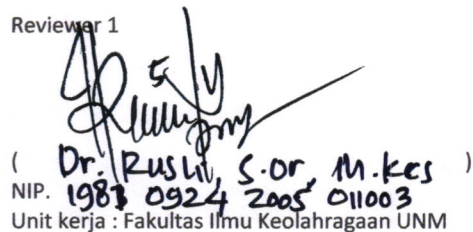 Reviewer 1
( Dr. Rusli, S.Or, M.Kes )
NIP. 1983 0924 2005 011003
Unit kerja : Fakultas Ilmu Keolahragaan UNM